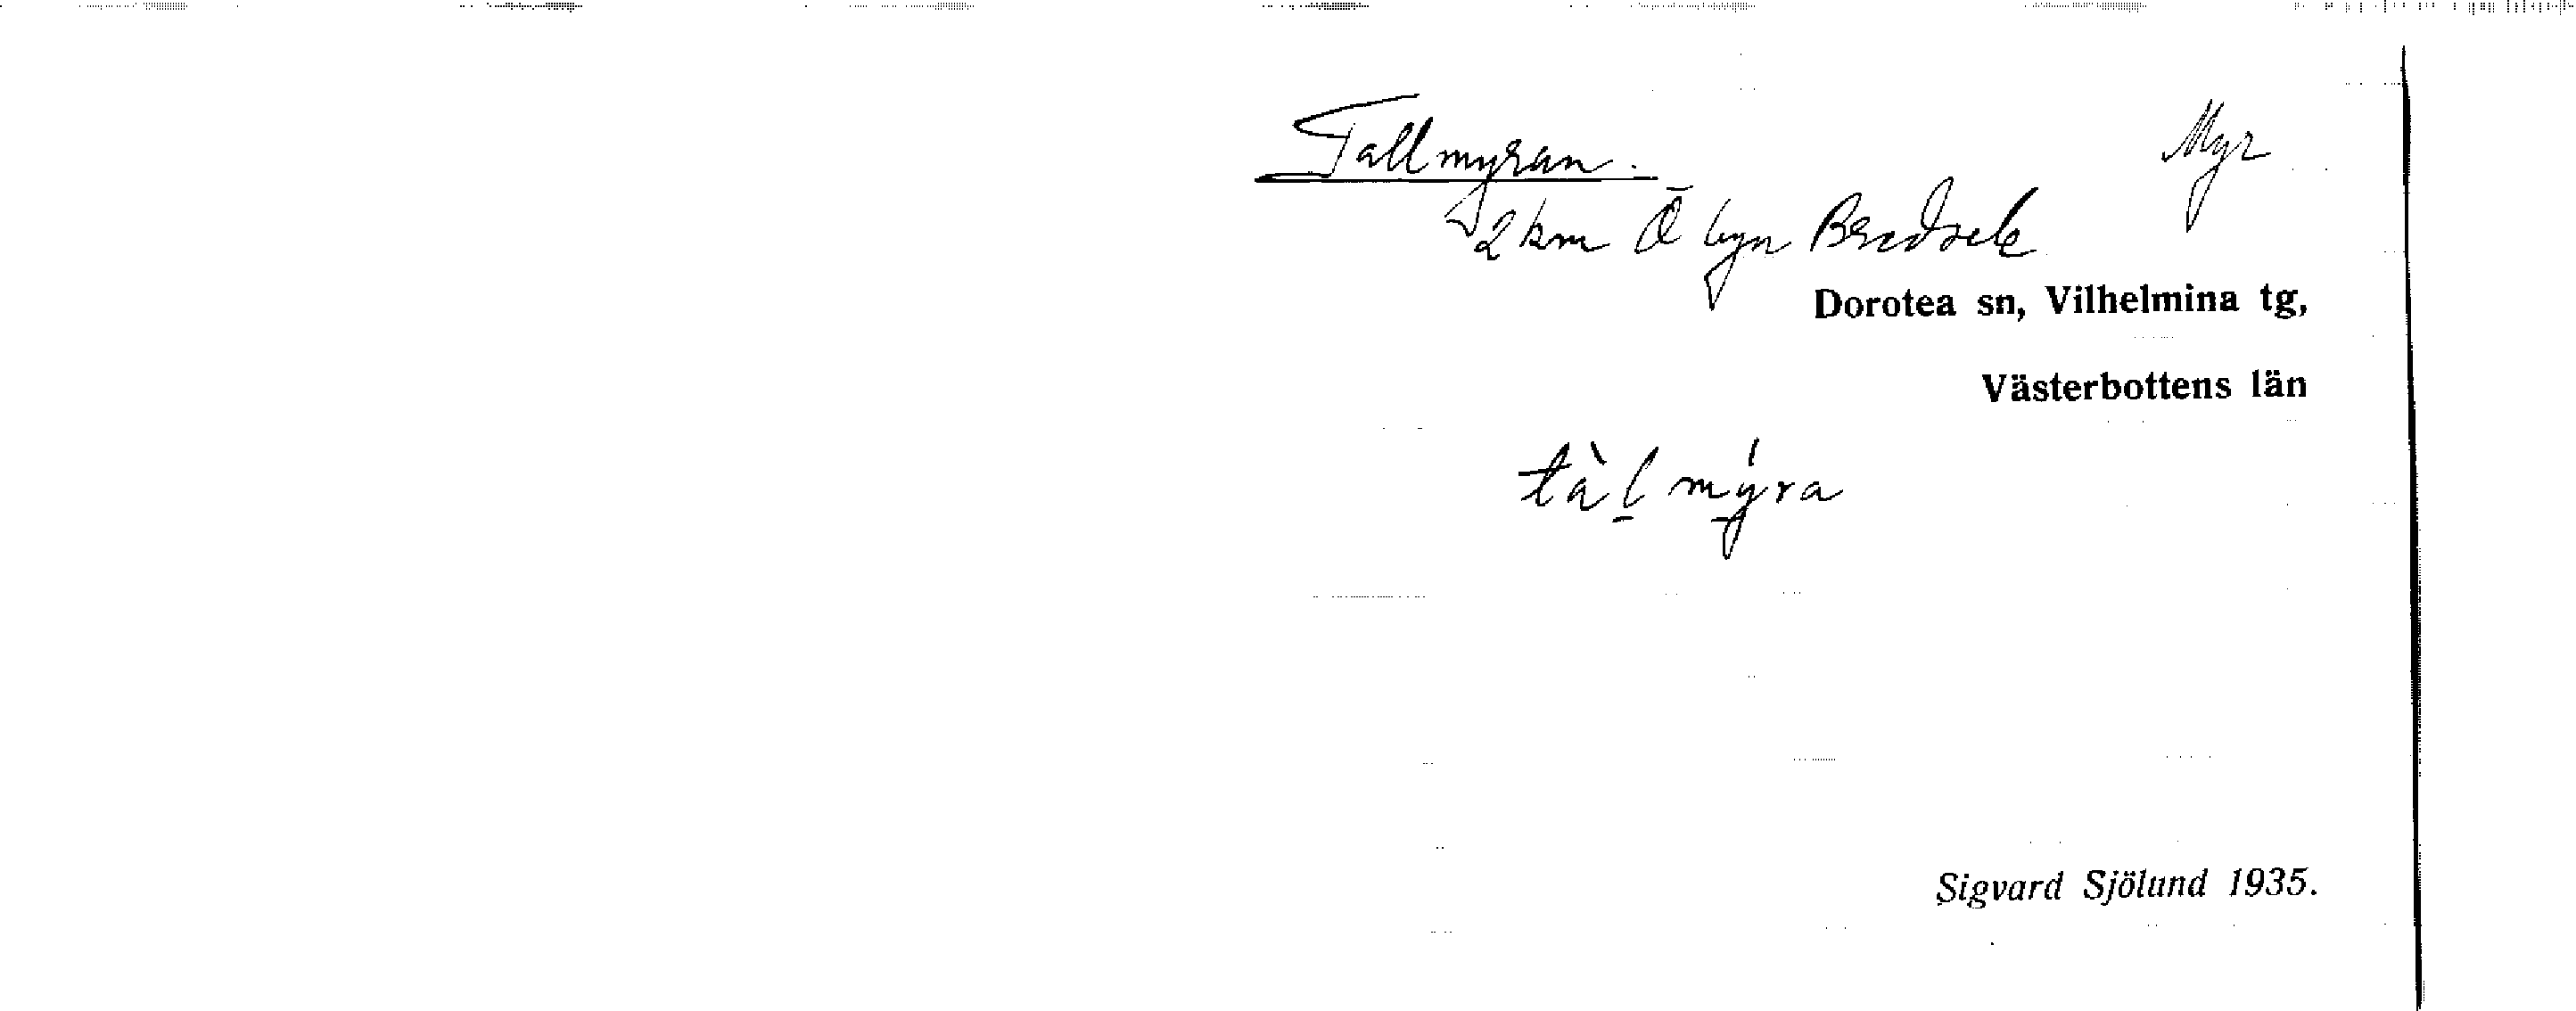 Tallmyran. Myr
2 km Ö byn Bredsele
Dorotea sn, Vilhelmina tg,
Västerbottens län
tàl̠ mý̠ra
Sigvard Sjölund 1935.